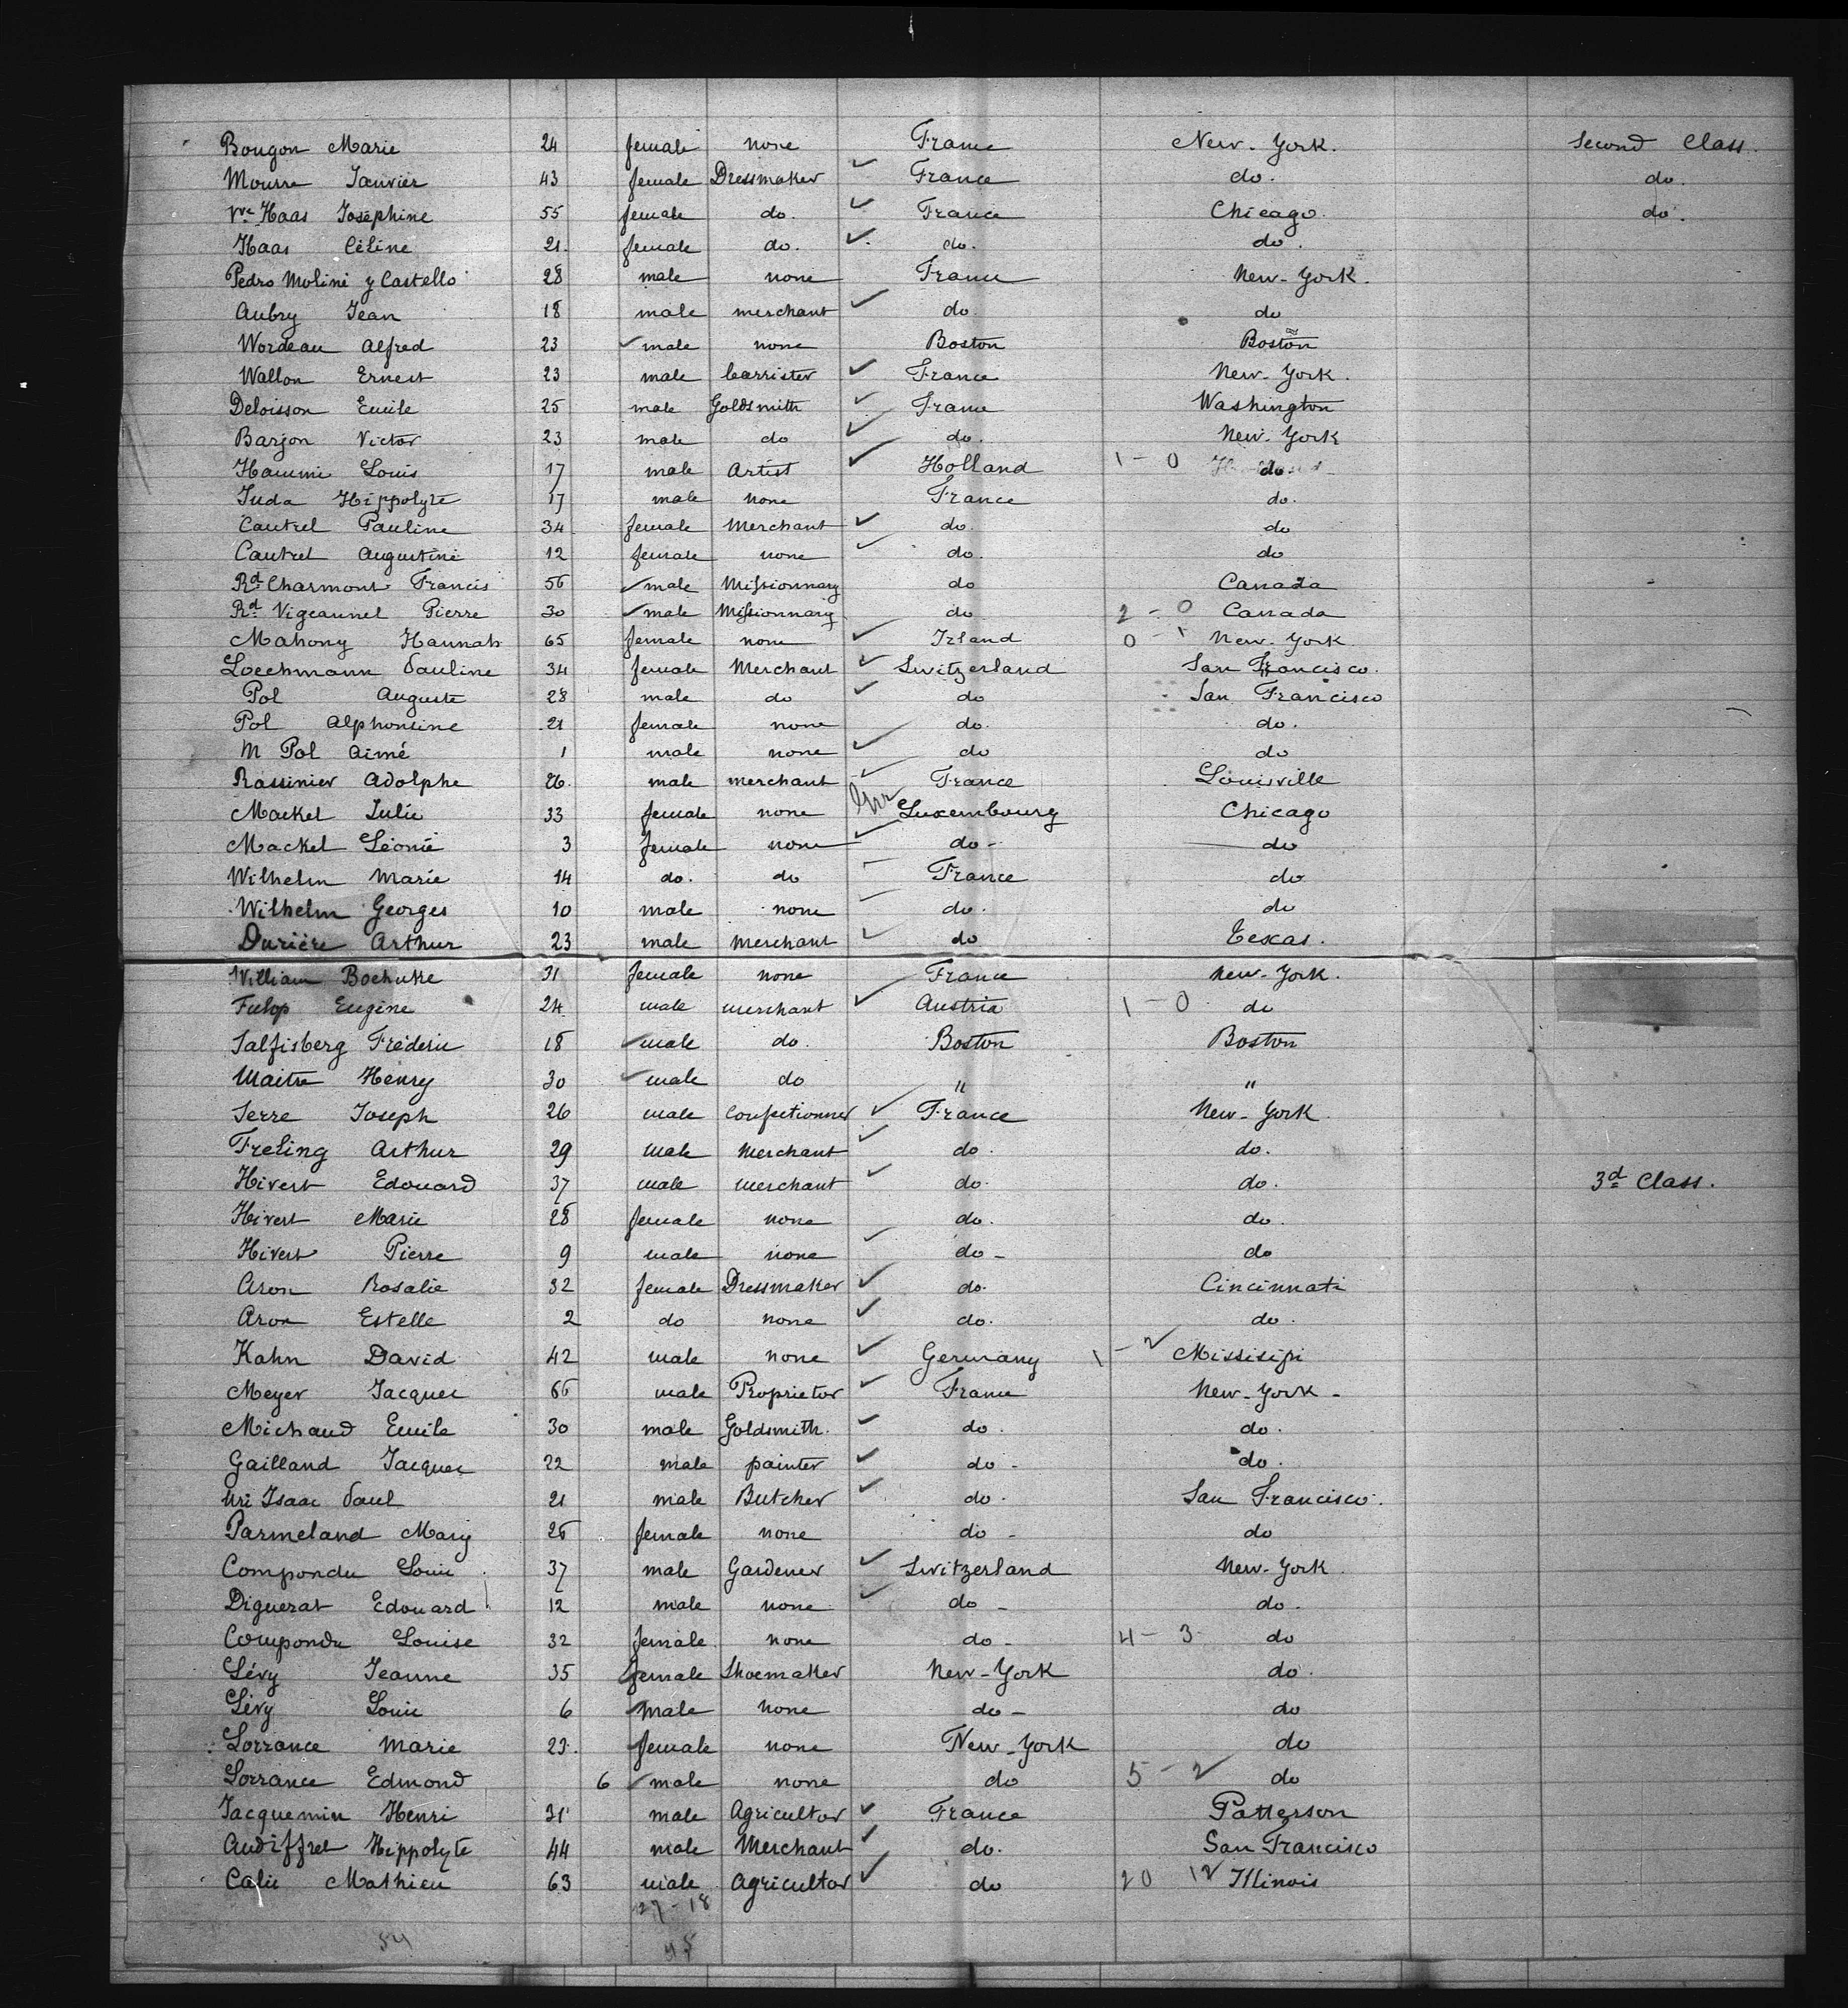 Bougon Marie 24 female none France New-York. Second Class.
Mourre Janvier 43 female Dressmaker France do. do.
Vve Haas Joséphine 55 female do. France Chicago. do.
Haas Céline 21. female do. do. do.
Pedro Moliné y Castello 28 male none France New-York.
Aubry Jean 18 male merchant do. do
Wordeau Alfred 23 male none Boston Boston
Wallon Ernest 23 male barrister France New-York.
Deloisson Emile 25 male Goldsmith France Washington
Barjon Victor 23 male do do. New-York
Hammi Louis 17 male Artist Holland 1-0 do.
Juda Hippolyte 17 male none France do.
Cautrel Pauline 34 female Merchant do. do
Cautrel Augustine 12 female none do. do
Rd Charmont Francis 56 male Missionnary do Canada
Rd Vigeaunel Pierre 30 male Missionnary do 2-0 Canada
Mahony Hannah 65 female none Irland 0-1 New-York
Loechmann Pauline 34 female Merchant Switzerland San Francisco.
Pol Auguste 28 male do do San Francisco
Pol Alphonsine 21 female none do. do.
M Pol Aimé 1 male none do do
Rassinier Adolphe 26. male merchant France Louisville
Mackel Julie 33 female none Luxembourg Chicago
Mackel Léonie 3 female none do- do
Wilhelm Marie 14 do. do France do
Wilhelm Georges 10 male none do. do
Durière Arthur 23 male Merchant do Texas.
William Bochutte 31 female none France New-York.
Fulop Eugène 24 male merchant Austria 1-0 do
Salfisberg Fréderic 18 male do. Boston Boston
Maitre Henry 30 male do " "
Serre Joseph 26 male Confectionner France New-York
Freling Arthur 29 male Merchant do. do.
Hivert Edouard 37 male merchant do. do. 3d Class.
Hivert Marie 28 female none do. do.
Hivert Pierre 9 male none do- do
Aron Rosalie 32 female Dressmaker do. Cincinnati
Aron Estelle 2 do none do. do.
Kahn David 42 male none Germany 1-2 Missisipi
Meyer Jacques 66 male Proprietor France New-York-
Michaud Emile 30 male Goldsmith. do. do.
Gailland Jacques 22 male painter do- do.
Uri Isaac Paul 21 male Butcher do. San Francisco.
Parmeland Mary 26 female none do- do
Compondu Louis 37 male Gardener Switzerland New-York
Diguerat Edouard 12 male none do- do.
Compondu Louise 32 female none do- 4-3 do
Lévy Jeanne 35 female Shoemaker New-York do.
Lévy Louis 6 male none do- do
Lorrance Marie 23. female none New-York do
Lorrance Edmond 6 male none do 5-2 do
Jacquemin Henri 31 male Agricultor France Patterson
Audiffret Hippolyte 44 male Merchant do. San Francisco
Calie Mathieu 63 male Agricultor do 20 12 Illinois
27-18
54 45